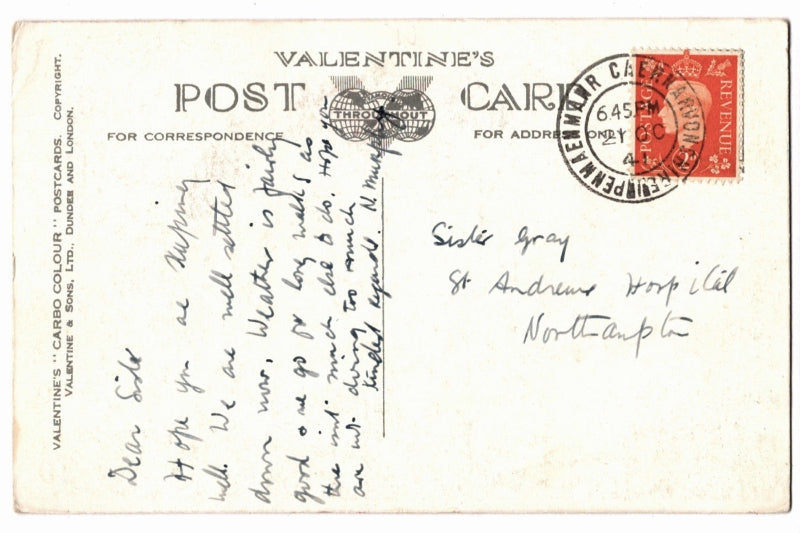 VALENTINE'S
POST CARD
THROUGHOUT
FOR CORRESPONDENCE
FOR ADDRESS ONLY
VALENTINE'S "CARBO COLOUR" POSTCARDS. COPYRIGHT.
VALENTINE & SONS, LTD., DUNDEE AND LONDON.
PENMAENMAWR CAERNARVONSHIRE
6.45 PM
21 OC
41
POSTAGE
REVENUE
Dear Sister
Hope you are keeping
well. We are well settled
down now, Weather is fairly
good & we go for long walks as
there isn't much else to do. Hope you
are not doing too much
kindest regards. N. Murphy
Sister Gray
St Andrews Hospital
Northampton